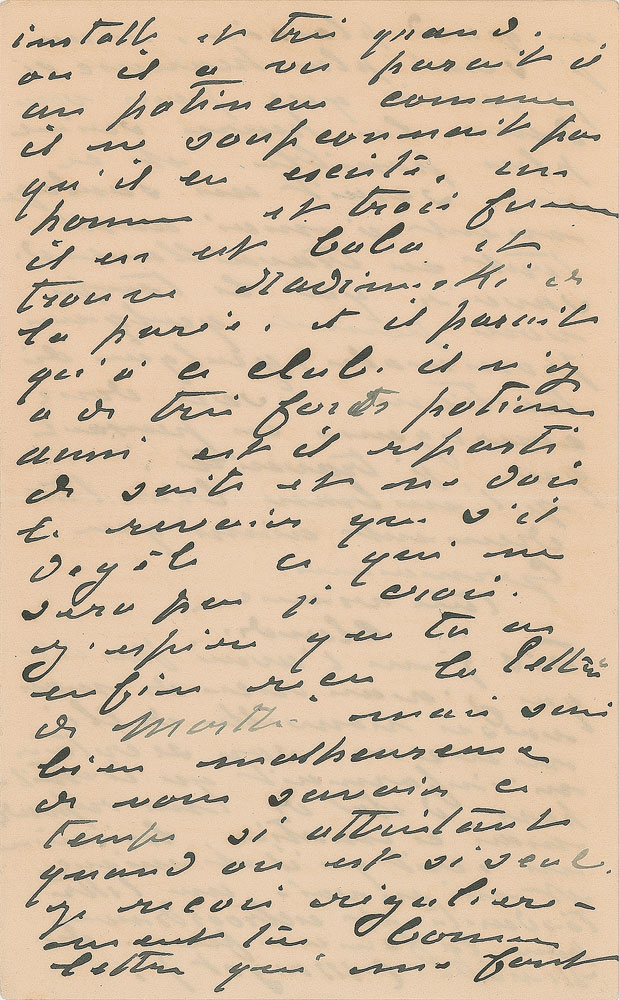 installé et très grand.
ou il a vu parait il
un patineur comme
il ne soupconnait pas
qu'il en existe, un
homme et trois femmes
il en est baba et
trouve de
la paresse. et il parait
qu'à ce club. il n'y
a de très forts patineurs
aussi est il reparti
de suite et ne dois
le revoir que s'il
dégèle ce qui ne
sera pas je crois.
j'espère que tu as
enfin reçu la lettre
de Marthe mais suis
bien malheureuse
de vous savoir ce
temps si attristant
quand on est si seul.
je reçois régulière-
ment tes bonnes
lettres qui me font